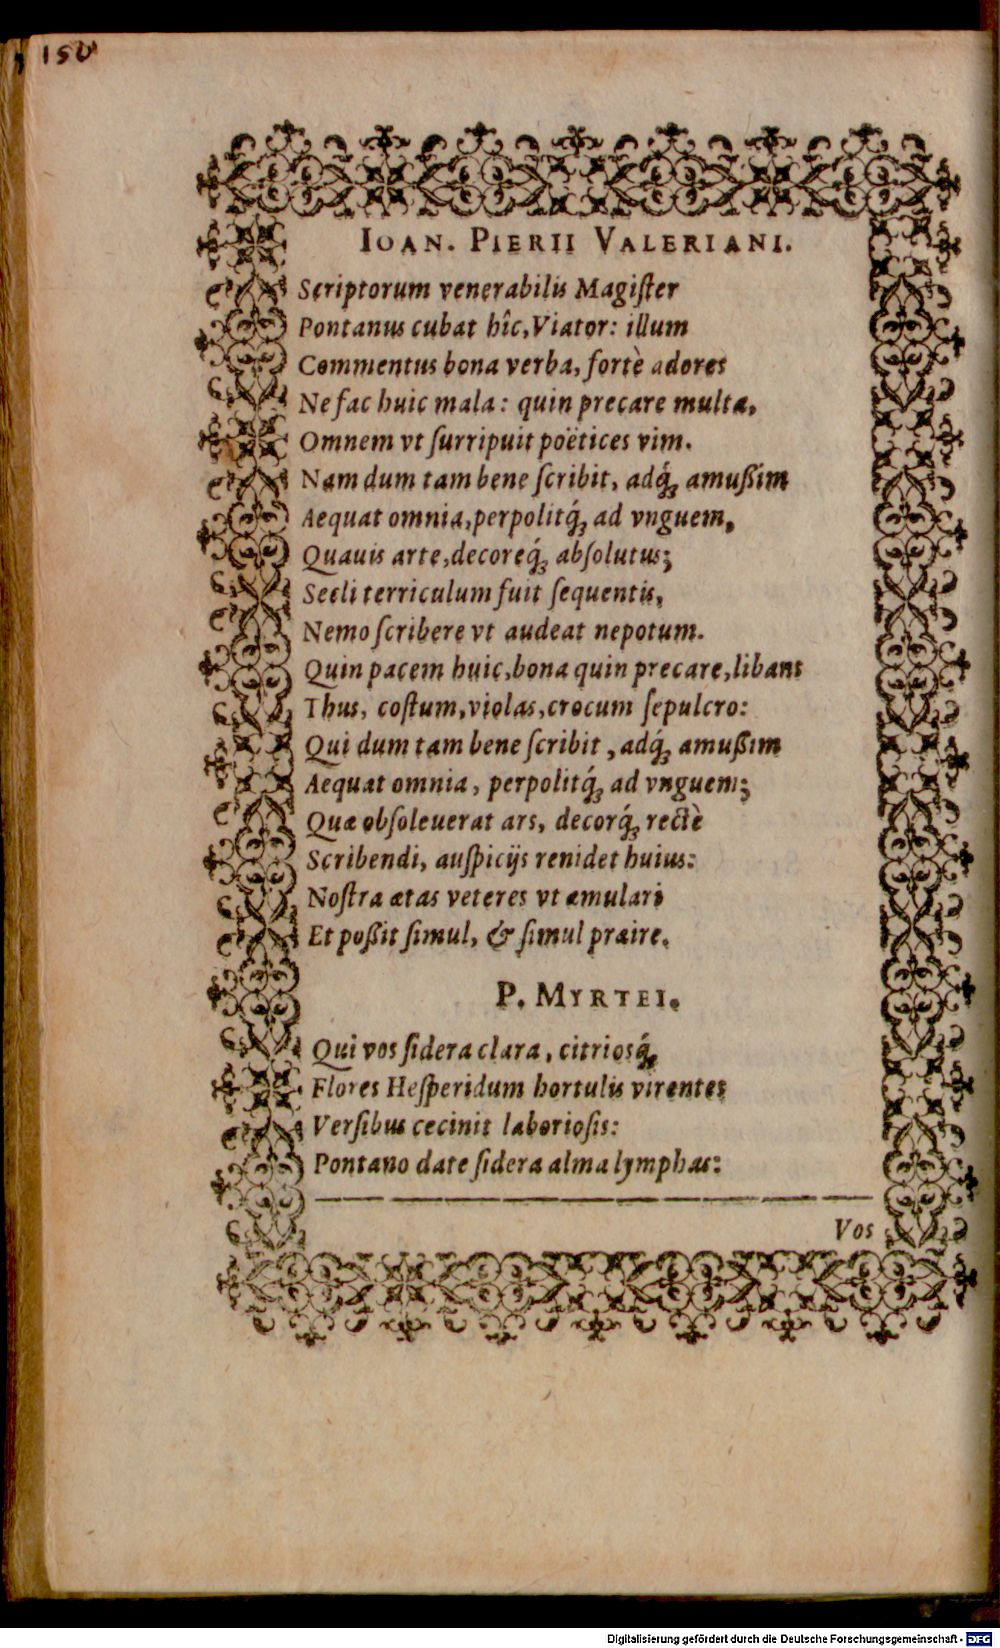 150
IOAN. PIERII VALERIANI.
Scriptorum venerabilis Magiſter
Pontanus cubat hîc, Viator: illum
Commentus bona verba, fortè adores
Ne fac huic mala: quin precare multa,
Omnem vt ſurripuit poëtices vim.
Nam dum tam bene ſcribit, adq́; amußim
Aequat omnia, perpolitq́; ad vnguem,
Quauis arte, decoreq́; abſolutus;
Secli terriculum fuit ſequentis,
Nemo ſcribere vt audeat nepotum.
Quin pacem huic, bona quin precare, libans
Thus, coſtum, violas, crocum ſepulcro:
Qui dum tam bene ſcribit, adq́; amußim
Aequat omnia, perpolitq́; ad vnguem;
Quæ obſoleuerat ars, decorq́; rectè
Scribendi, auſpicijs renidet huius:
Noſtra ætas veteres vt æmulari
Et poßit ſimul, & ſimul præire.
P. MYRTEI.
Qui vos ſidera clara, citriosq́;
Flores Heſperidum hortulis virentes
Verſibus cecinit laborioſis:
Pontano date ſidera alma lymphas:
Vos
Digitalisierung gefördert durch die Deutsche Forschungsgemeinschaft - DFG